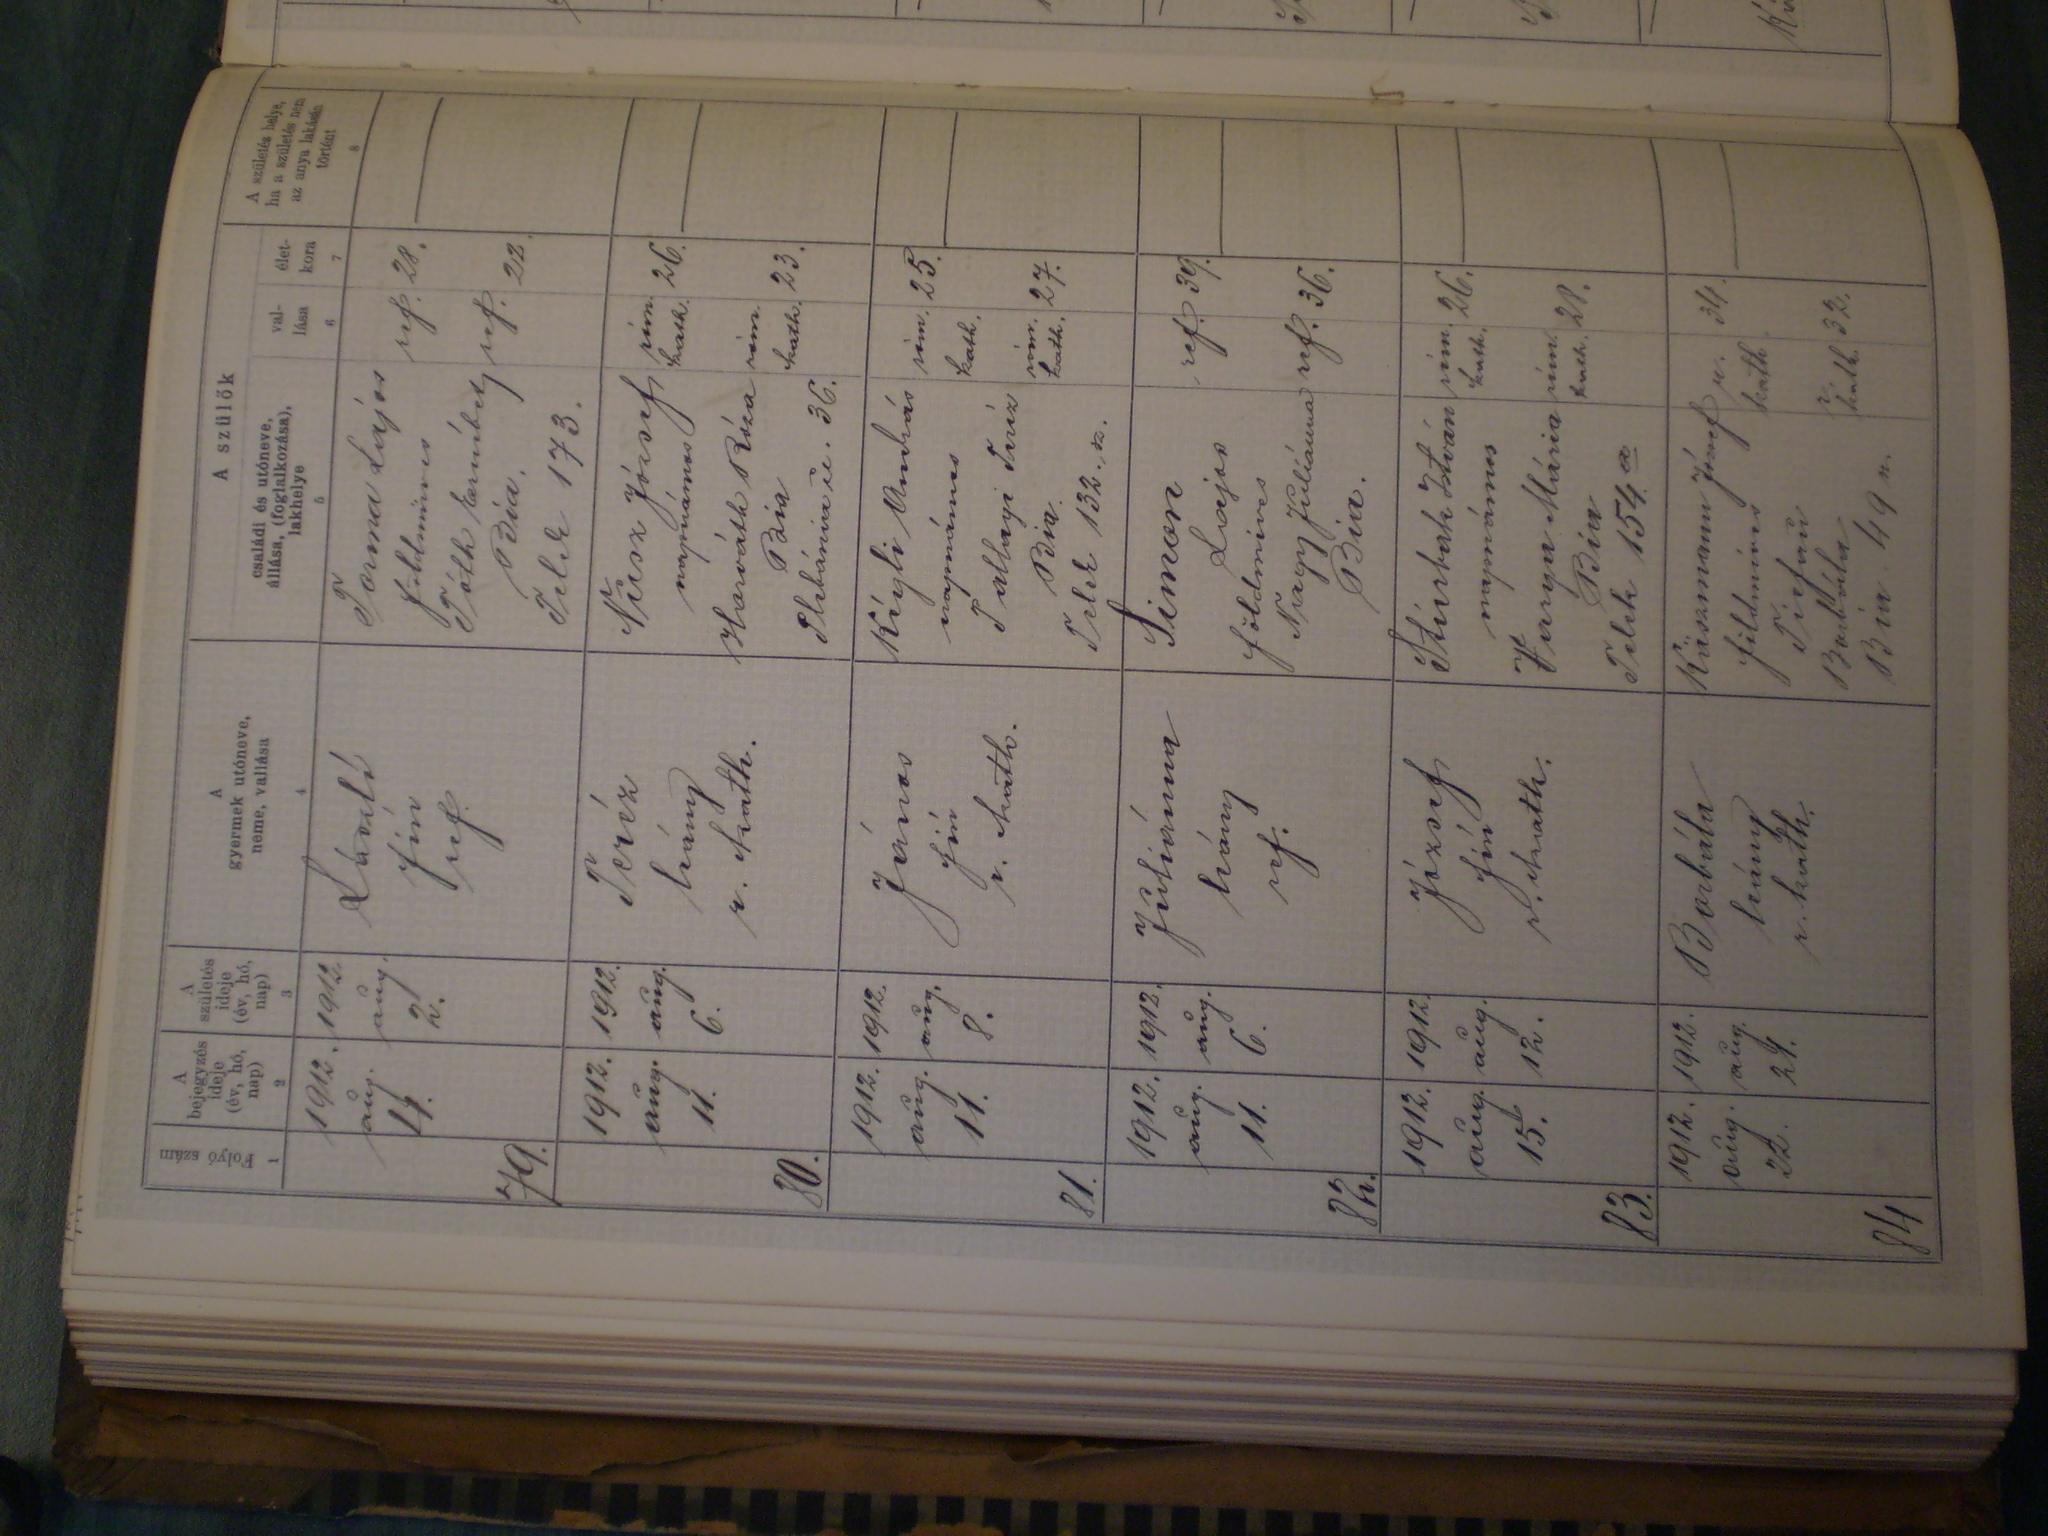 A szülők
1
Folyó szám
2
A
bejegyzés
ideje
(év, hó,
nap)
3
A
születés
ideje
(év, hó,
nap)
4
A
gyermek utóneve,
neme, vallása
5
családi és utóneve,
állása, (foglalkozása),
lakhelye
6
val-
lása
7
élet-
kora
8
A születés helye,
ha a születés nem
az anya lakásán
történt
79.
1912.
aug.
1912.
aug.
2.
László
fiú
ref.
Torma Lajos
földmives
Tóth
Bia.
Telek 173.
ref. 28.
ref. 22.
80.
1912.
aug.
11.
1912.
aug.
6.
Teréz
leány
r. kath.
József
napszámos
Horváth Róza
Bia
36.
róm.
kath.
26.
róm.
kath.
23.
81.
1912.
aug.
11.
1912.
aug.
8.
János
fiú
r. kath.
Kégli András
napszámos
Pallagi Teréz
Bia.
Telek 132.
róm.
kath.
25.
róm.
kath.
27.
82.
1912.
aug.
11.
1912.
aug.
6.
Juliánna
leány
ref.
Simon
Lajos
földmives
Nagy Juliánna
Bia.
ref. 39.
ref. 36.
83.
1912.
aug.
15.
1912.
aug.
12.
József
fiú
r. kath.
István
napszámos
Varga Mária
Bia
Telek 154 a
róm.
kath.
26.
róm.
kath.
28.
84
1912.
aug.
22.
1912.
aug.
21.
Borbála
leány
r. kath.
József
földmives
Borbála
Bia. 49
r.
kath.
34.
r.
kath.
32.